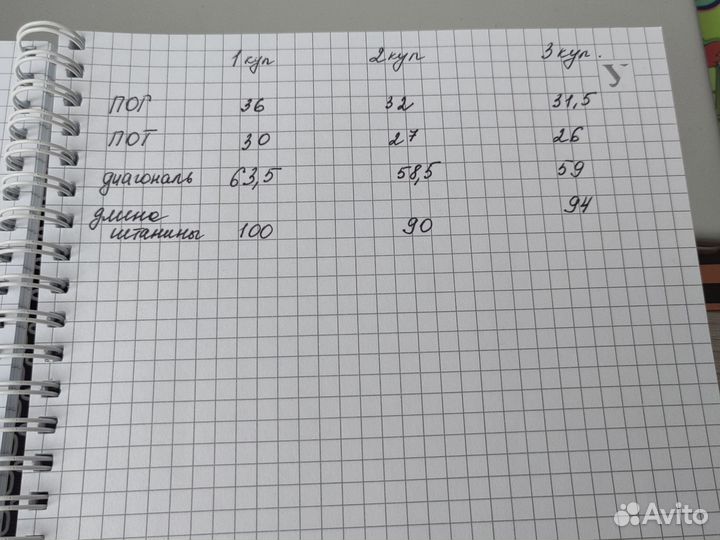 1 куп 2 куп 3 куп.
ПОГ 36 32 31,5
ПОТ 30 27 26
диагональ 63,5 58,5 59
длина 94
штанины 100 90
Avito